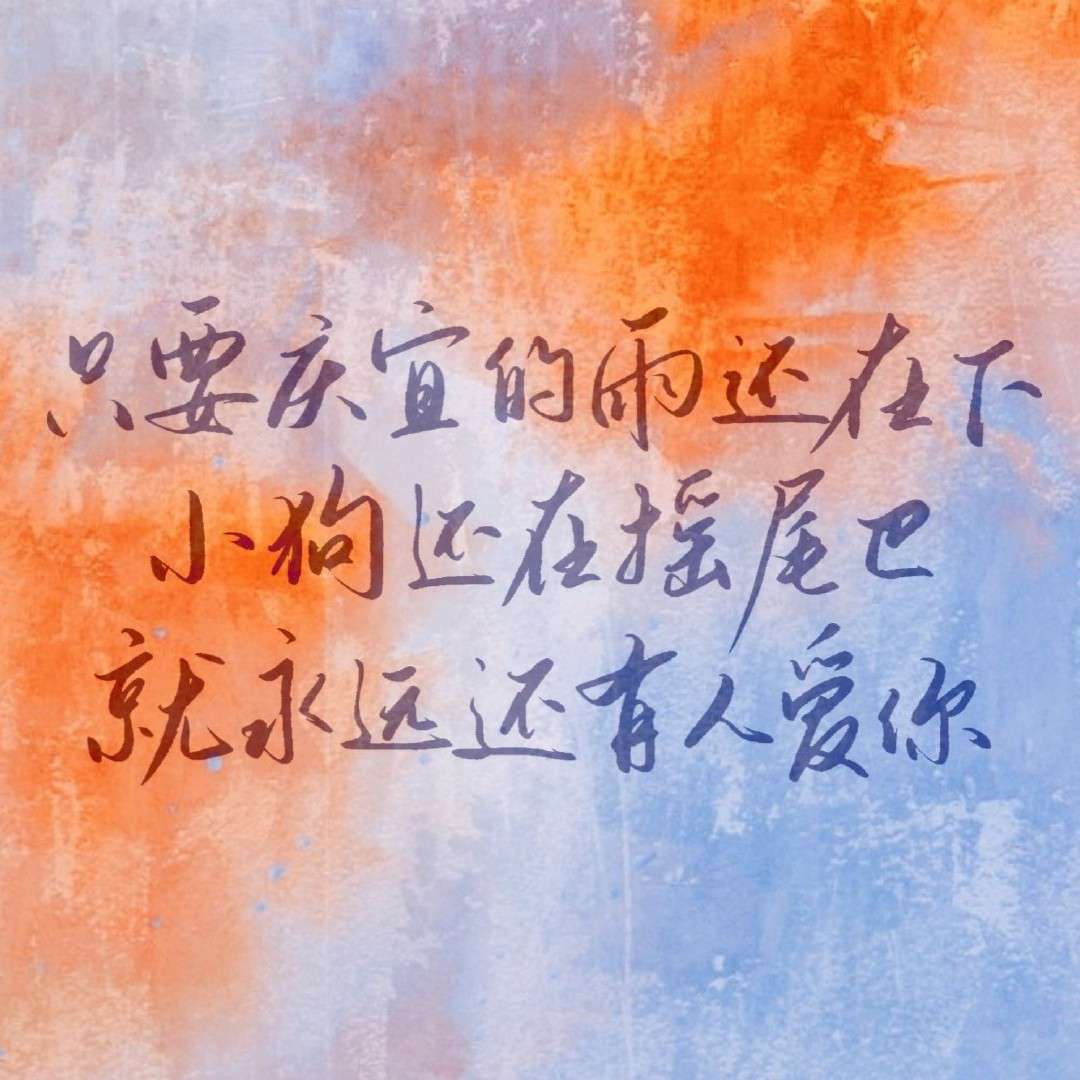 只要庆宜的雨还在下
小狗还在摇尾巴
就永远还有人爱你